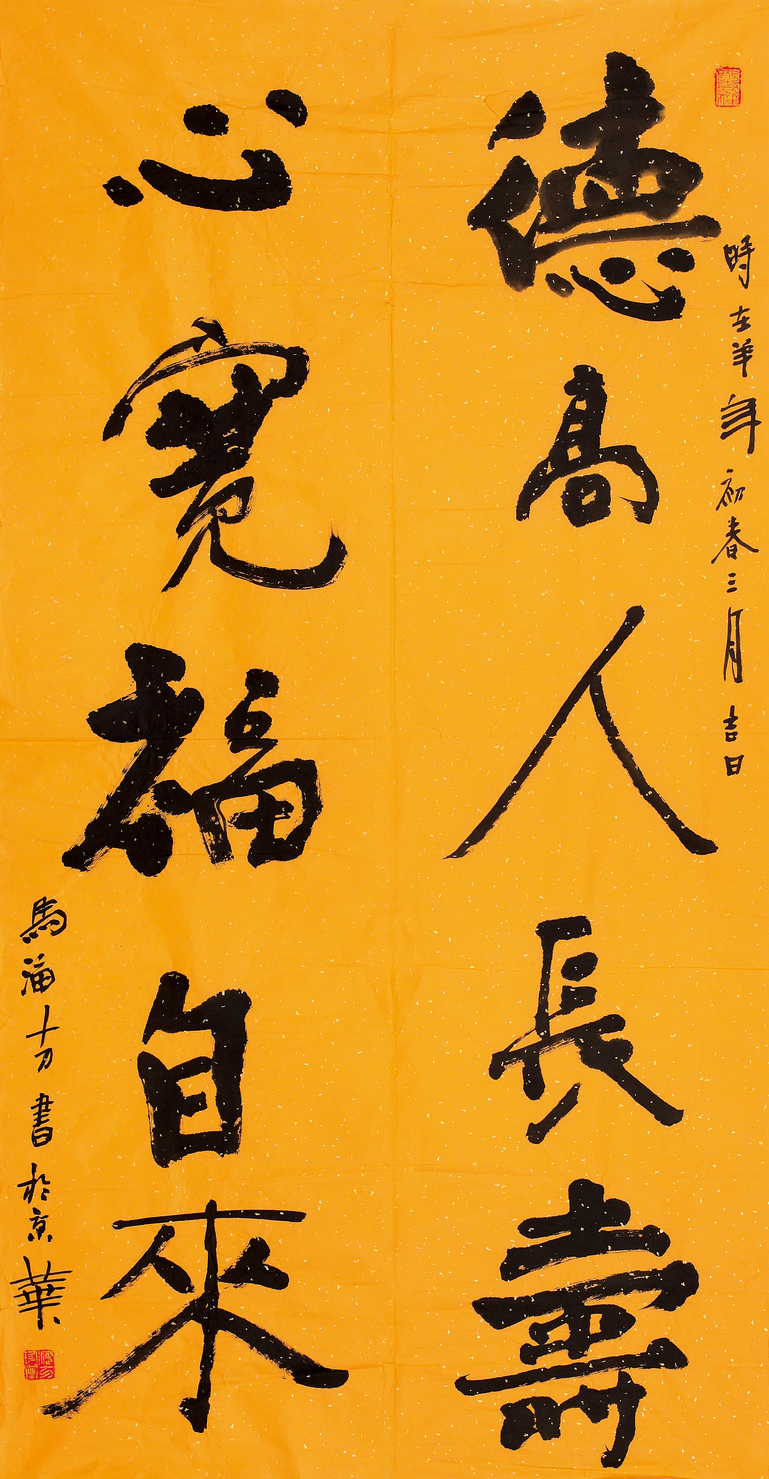 時在羊年初春三月吉日
德高人長壽
心寬福自來
馬海方書於京華